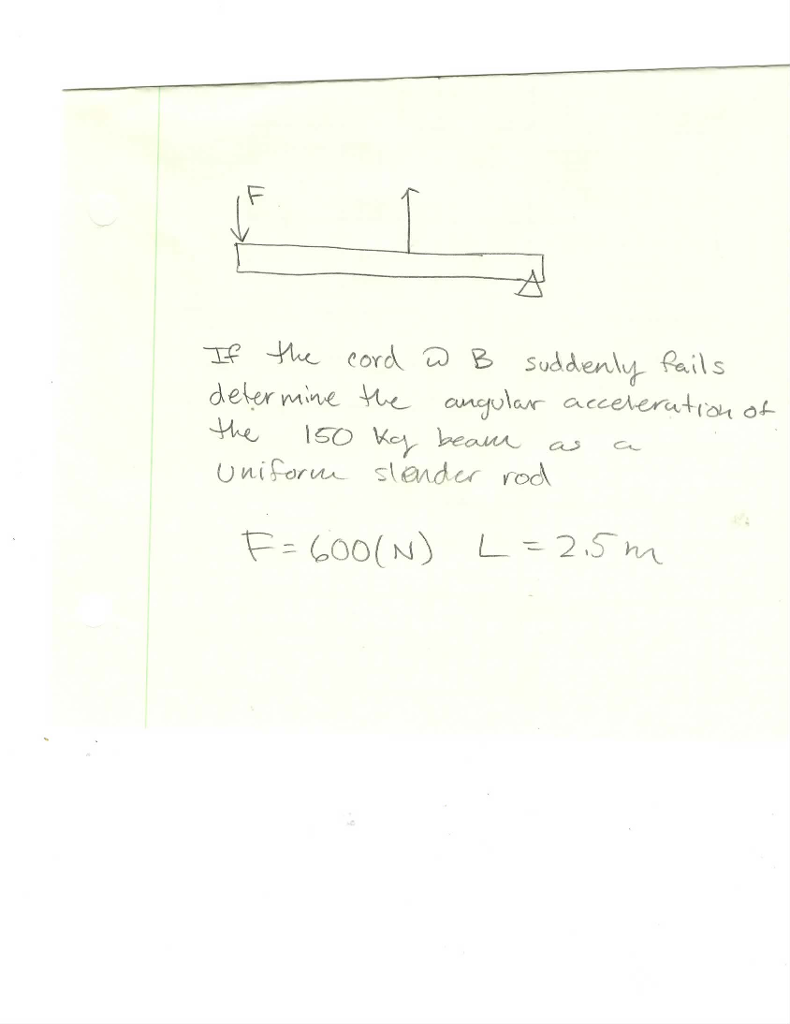 F
If the cord @ B suddenly fails
determine the angular acceleration of
the 150 kg beam as a
Uniform slender rod
F = 600(N) L = 2.5 m